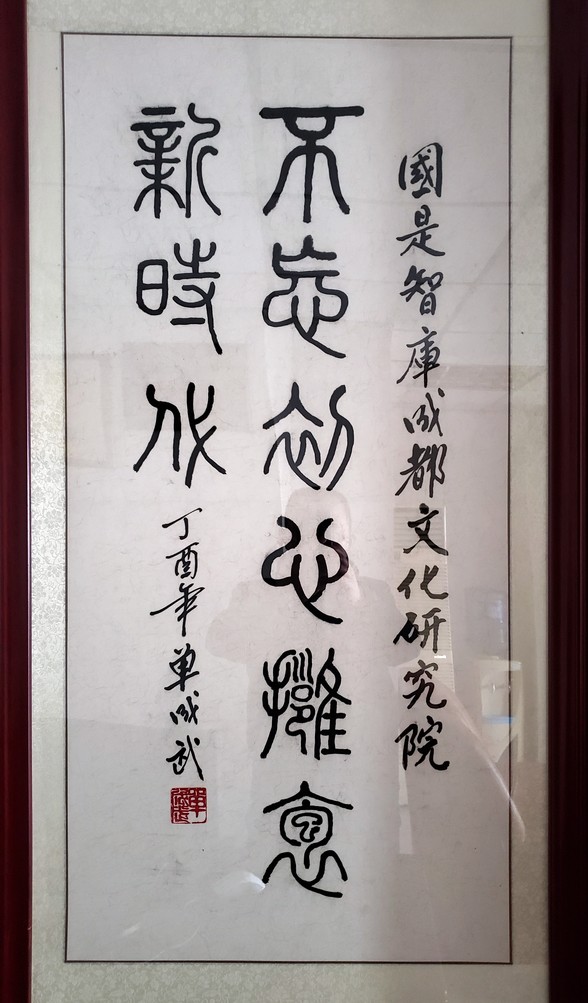 國是智庫成都文化研究院
不忘初心擁袌
新時代
丁酉年单成武
單成武